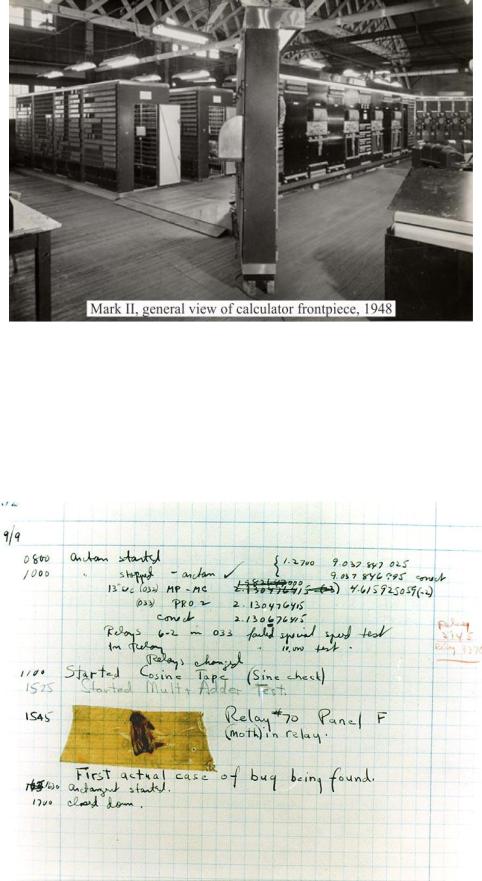 Mark II, general view of calculator frontpiece, 1948
9/9
0800 arctan started
1.2700 9.037 847 025
1000 " stopped - arctan ✓ 9.037 846 995 correct
13"uc (032) MP - MC 2.130476415 4.615925059(-2)
(033) PRO 2 2.130476415
correct 2.130676415
Relays 6-2 in 033 failed special speed test
in Relay " 10,000 test.
Relays changed
Relay
1100 Started Cosine Tape (Sine check)
1525 Started Mult + Adder Test.
1545 Relay #70 Panel F
(moth) in relay.
First actual case of bug being found.
arctangent started.
1700 closed down.